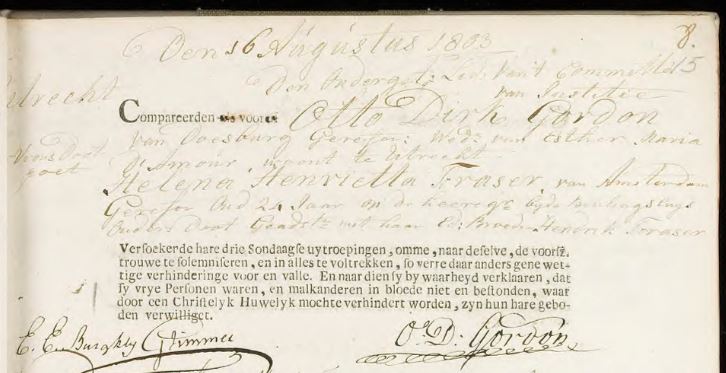 8.
Den 16 Augustus 1803
Den Onderget: Lid van't Committé
van Justitie
Utrecht
Compareerden voor Otto Dirk Gordon
van Doesburg Gerefor: Wedr van Esther Maria
D'Amour, woont te Utrecht
Helena Henrietta Fraser, van Amsterdam
Gerefor Oud 24 Jaar op de heeregt bijde
Ouders Doot Geadstt met haar Broeder Hendrik Fraser
Versoekende hare drie Sondaagse uytroepingen, omme, naar deselve, de voorsz.
trouwe te solemniseren, en in alles te voltrekken, so verre daar anders gene wet-
tige verhinderinge voor en valle. En naar dien sy by waarheyd verklaaren, dat
sy vrye Personen waren, en malkanderen in bloede niet en bestonden, waar
door een Christelyk Huwelyk mochte verhindert worden, zyn hun hare gebo-
den verwilliget.
O: D: Gordon